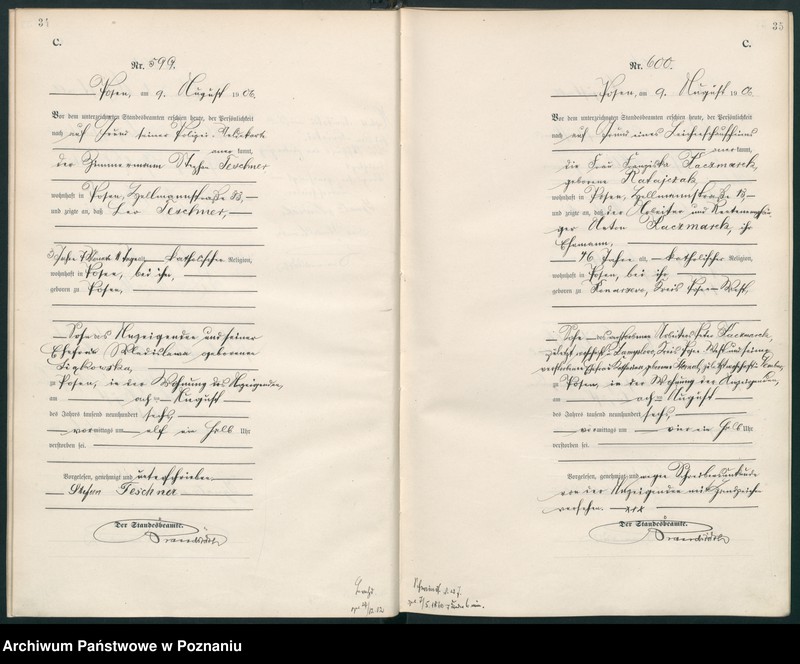 34
C.
Nr. 599.
Posen, am 9. August 1906.
Vor dem unterzeichneten Standesbeamten erschien heute, der Persönlichkeit
nach auf Grund seiner Polizei-Meldekarte
anerkannt,
der Zimmermann Stefan Teschner
wohnhaft in Posen, Hellmannstraße 13,
und zeigte an, daß Leo Teschner,
3 Jahre 1 Monat 11 Tage alt, katholischer Religion,
wohnhaft in Posen, bei ihm,
geboren zu Posen,
Sohn des Anzeigenden und seiner
Ehefrau Wladislawa geborenen
zu Posen, in der Wohnung des Anzeigenden,
am acht August
des Jahres tausend neunhundert sechs
vormittags um elf ein halb Uhr
verstorben sei.
Vorgelesen, genehmigt und unterschrieben
Stefan Teschner
Der Standesbeamte.
35
C.
Nr. 600.
Posen, am 9. August 1906.
Vor dem unterzeichneten Standesbeamten erschien heute, der Persönlichkeit
nach auf Grund eines Leichenschauscheins
anerkannt,
die Frau Franziska Kaczmarek,
geborene Ratajczak,
wohnhaft in Posen, Hellmannstraße 13,
und zeigte an, daß der Arbeiter und
Anton Kaczmarek, ihr
Ehemann,
76 Jahre alt, katholischer Religion,
wohnhaft in Posen, bei ihr
geboren zu Konarzewo, Kreis Posen West,
Sohn des verstorbenen Arbeiters Kaczmarek,
zuletzt wohnhaft in Kreis Posen West und seiner
verstorbenen Ehefrau
zu Posen, in der Wohnung der Anzeigenden,
am acht August
des Jahres tausend neunhundert sechs
vormittags um vier ein halb Uhr
verstorben sei.
Vorgelesen, genehmigt und wegen Schreibensunkunde
von der Anzeigenden mit Handzeichen
versehen. xxx
Der Standesbeamte.
Archiwum Państwowe w Poznaniu